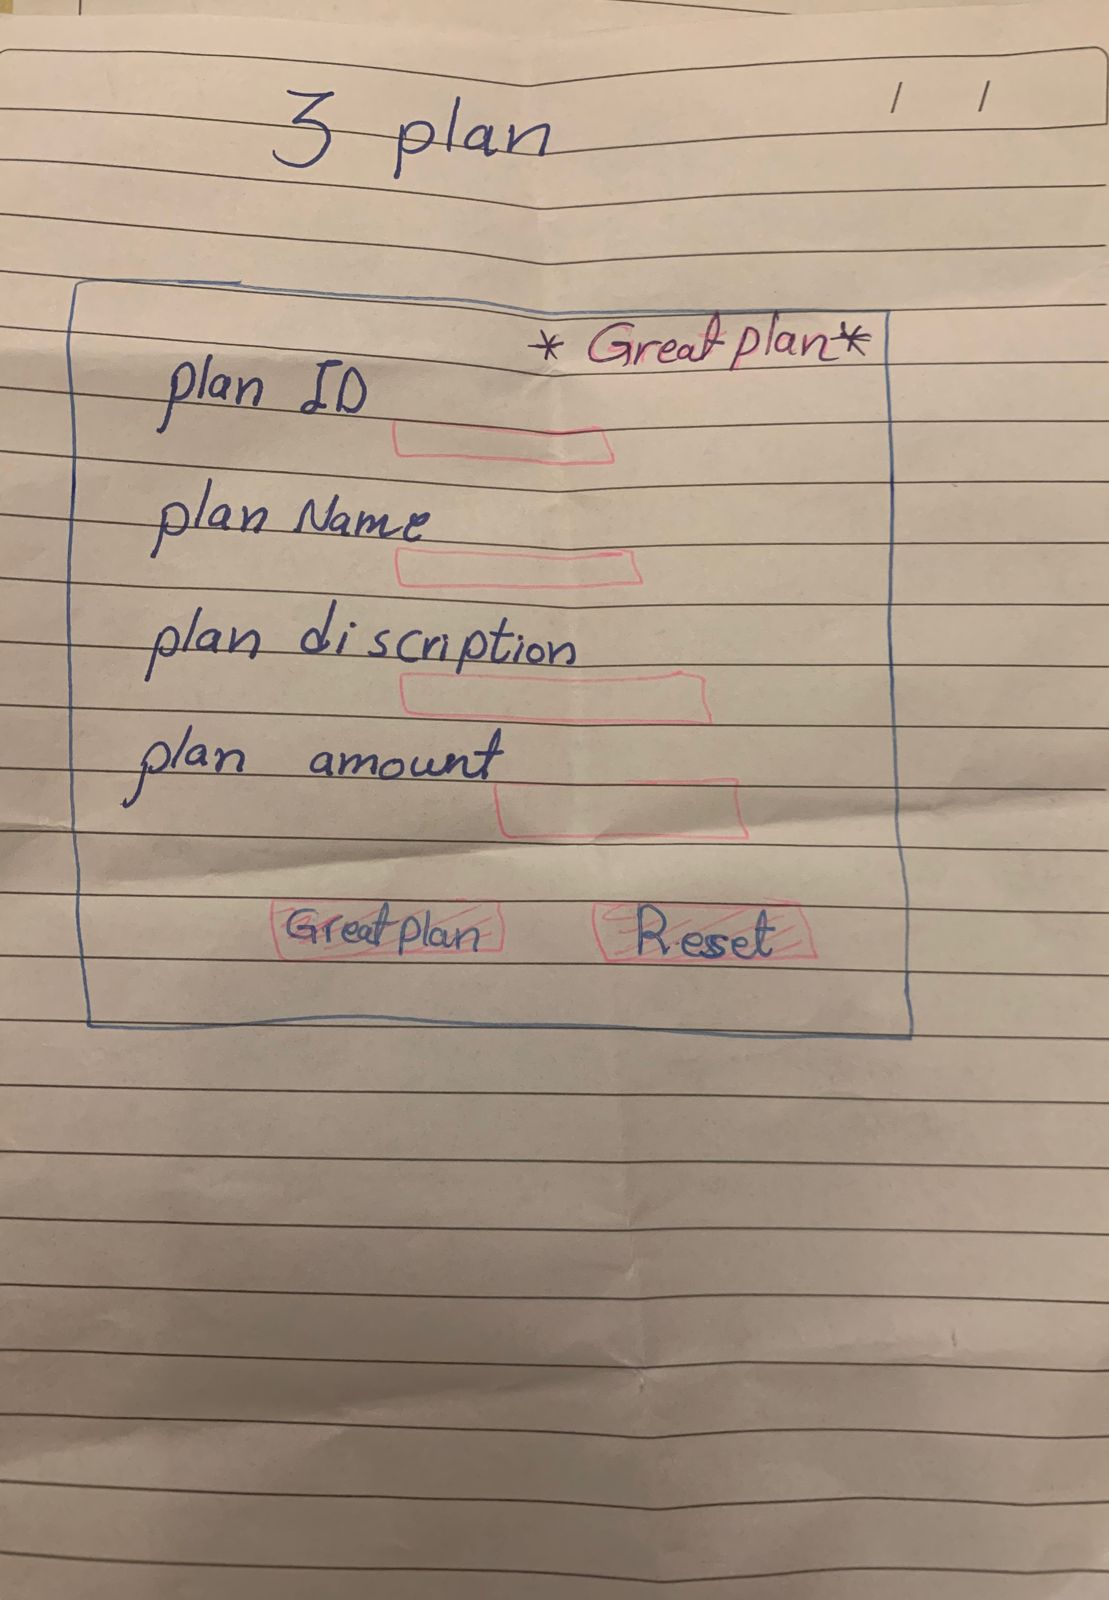 3 plan
/ /
* Great plan *
plan ID
plan Name
plan discription
plan amount
Great plan Reset